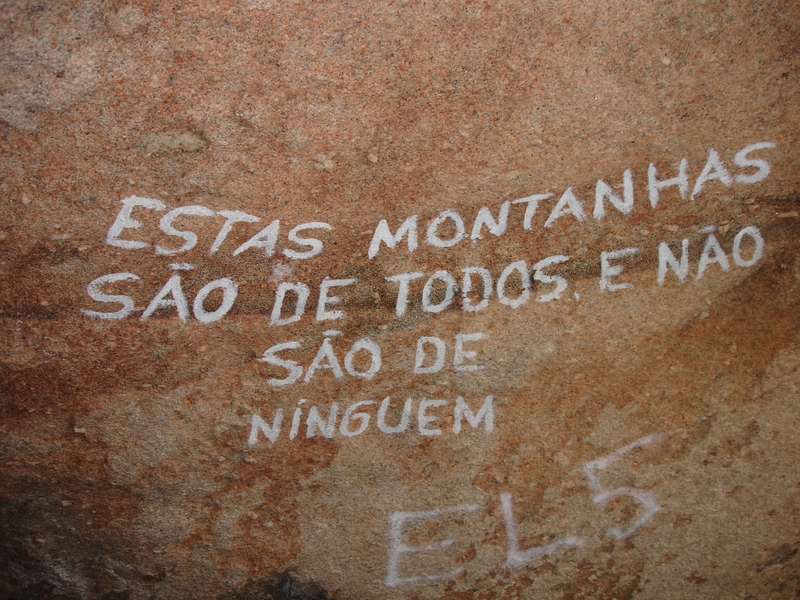 ESTAS MONTANHAS
SÃO DE TODOS, E NÃO
SÃO DE
NINGUEM
EL5